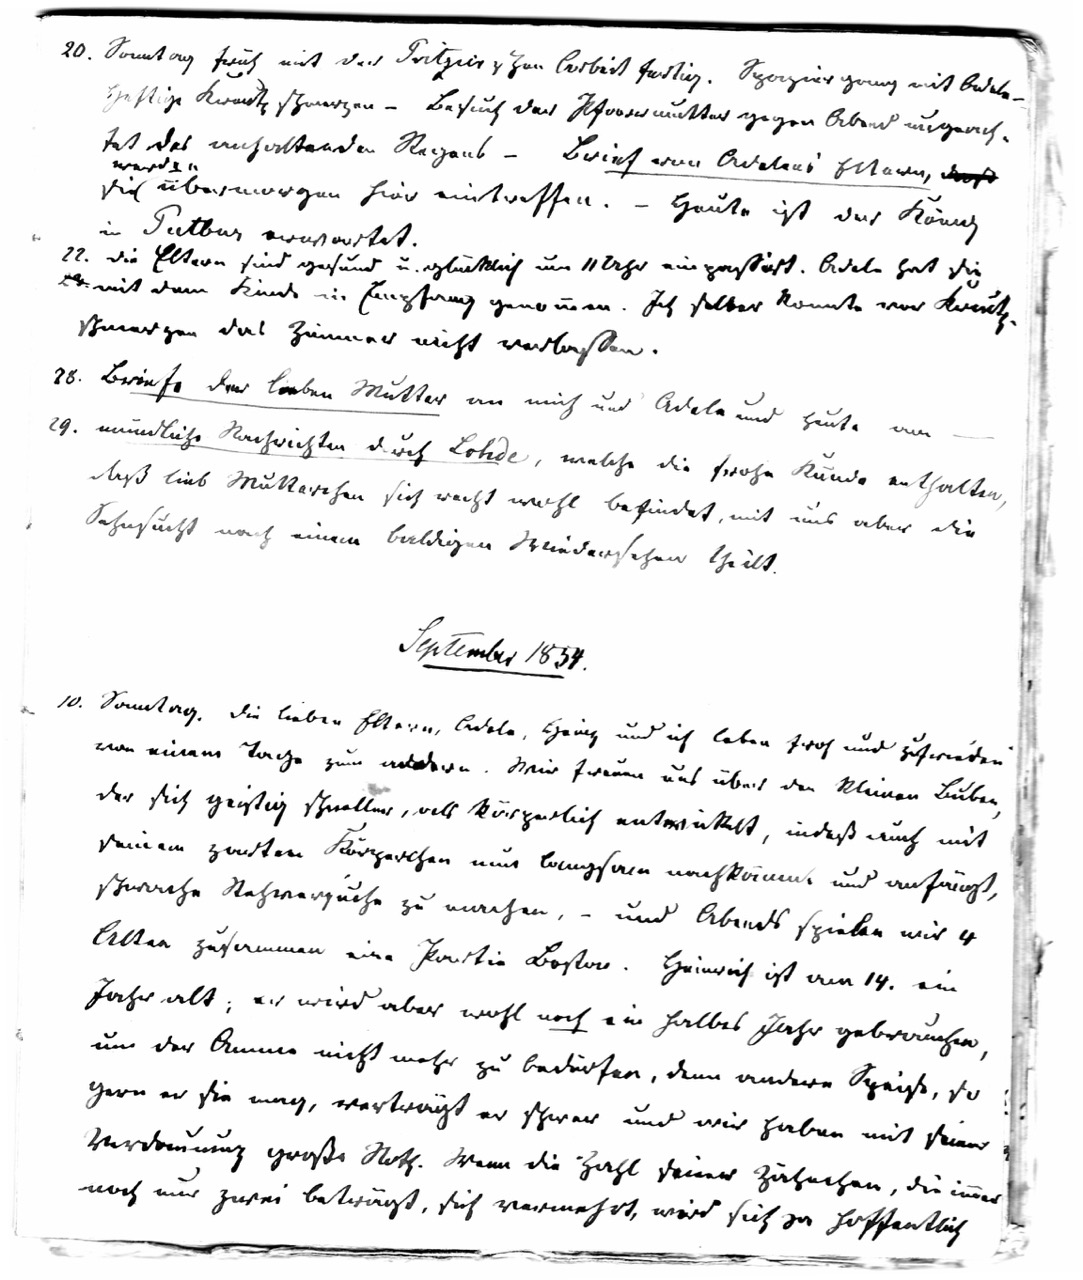 20. Sonntag früh mit der Arbeit fertig. Spaziergang mit Adele –
heftige Kreuzschmerzen – Besuch der Pfarrmutter gegen Abend ungeach-
tet des anhaltenden Regens – Brief von Adelens Eltern, daß
werden
sie übermorgen hier eintreffen. – Heute ist der König
in Putbus erwartet.
22. Die Eltern sind gesund u. glücklich um 11 Uhr einpassirt. Adele hat sie
mit dem Kinde in Empfang genommen. Ich selber konnte vor Kreuz-
schmerzen das Zimmer nicht verlassen.
28. Briefe der lieben Mutter an mich und Adele und heute am —
29. mündliche Nachrichten durch Lohde, welche die frohe Kunde enthalten,
daß lieb Mutterchen sich recht wohl befindet, mit uns aber die
Sehnsucht nach einem baldigen Wiedersehen theilt.
September 1854.
10. Sonntag. Die lieben Eltern, Adele, Heinz und ich leben froh und zufrieden
von einem Tage zum andern. Wir freuen uns über den kleinen Buben,
der sich geistig schneller, als körperlich entwickelt, indeß auch mit
seinem zarten Körperchen nun langsam nachkömmt und anfängt,
schwache Stehversuche zu machen, – und Abends spielen wir 4
Alten zusammen eine Partie Boston. Heinrich ist am 14. ein
Jahr alt; er wird aber wohl noch ein halbes Jahr gebrauchen,
um der Amme nicht mehr zu bedürfen, denn andere Speise, so
gern er sie mag, verträgt er schwer und wir haben mit seiner
Verdauung große Noth. Wenn die Zahl seiner Zähnchen, die immer
noch nur zwei beträgt, sich vermehrt, wird sich ja hoffentlich